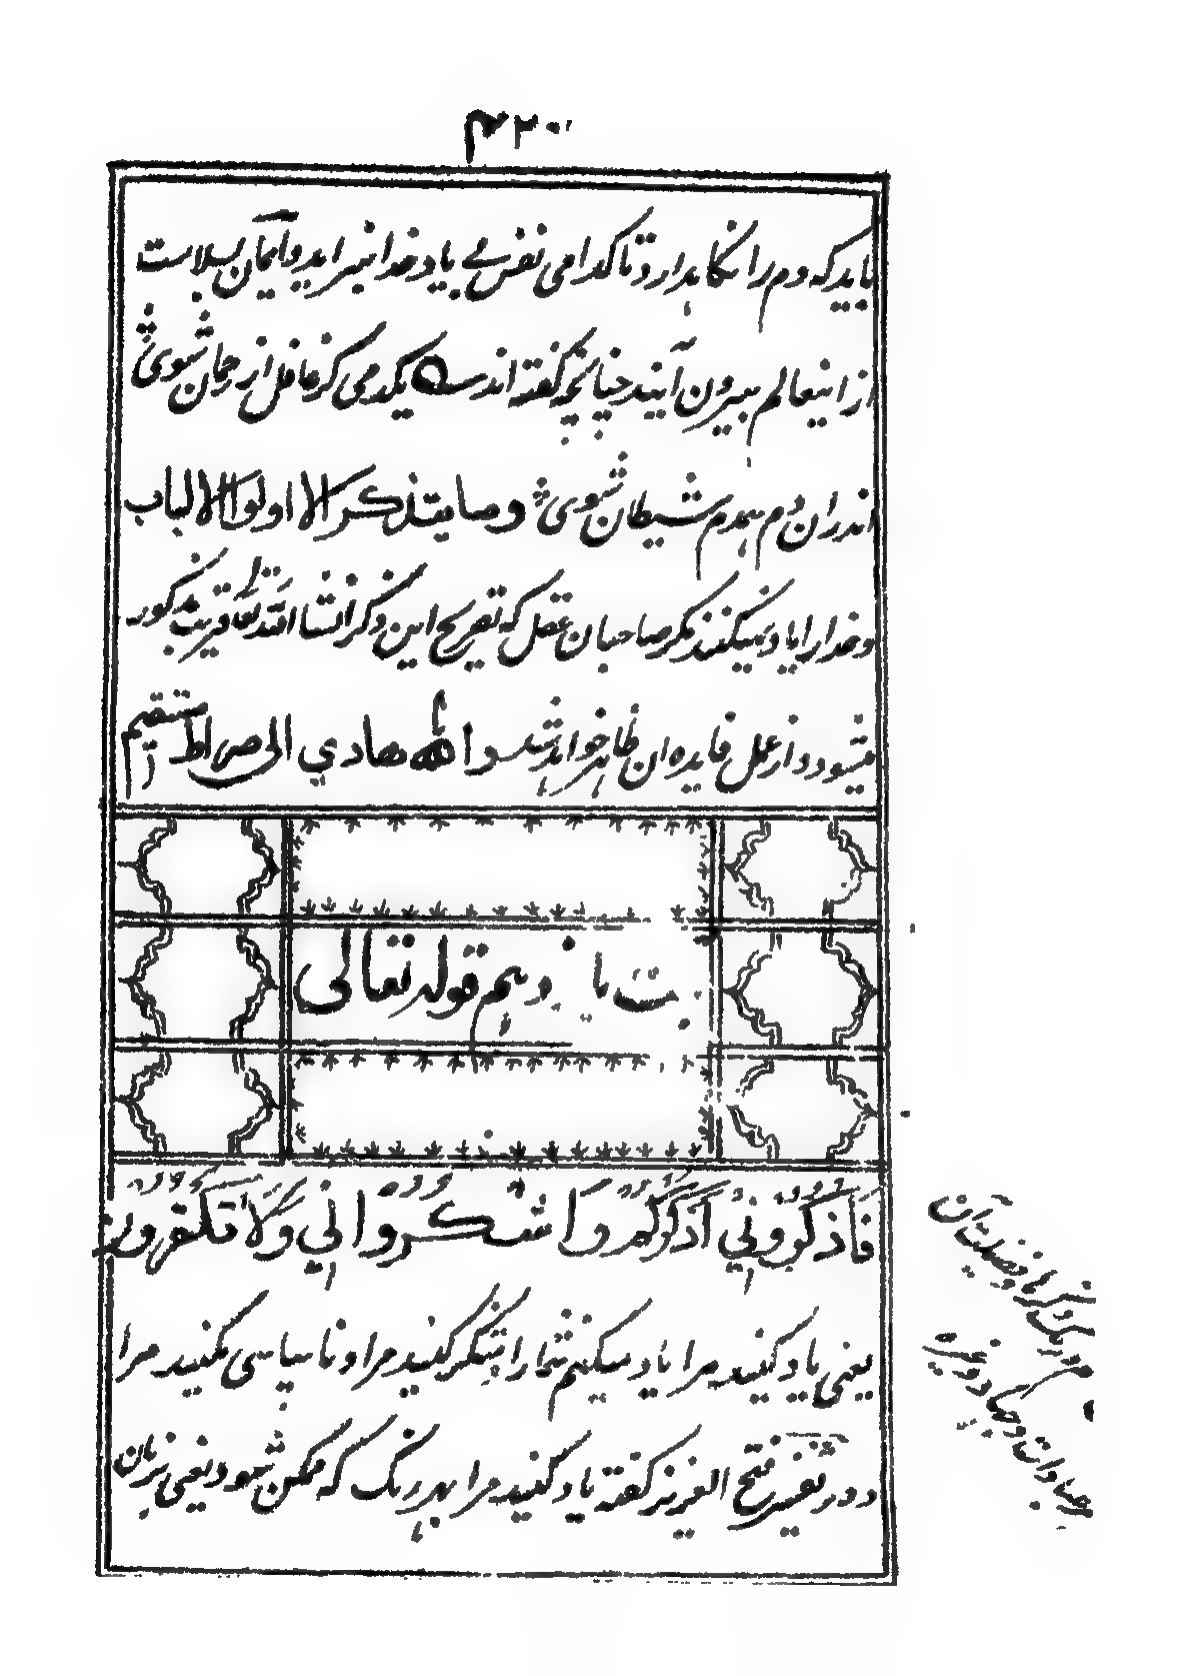 ۴۲۰
باید که دم را نگاهدارد تا کدامی نفس بے یاد خدا نبراید و با ایمان بسلامت
از اینعالم بیرون آیند چنانچه گفته اند یکدمی کز غافل از رحمان شوی
اندران دم همدم شیطان شوی وما یتذکر الا اولوا الالباب
و خدا را یاد نمیکنند مگر صاحبان عقل که تفریح این ذکر انشا الله تعالی قریب مذکور
میشود و از عمل فایده ان ظاهر خواهد شد والله هادی الی صراط مستقیم
ت یا دهم قوله تعالی
فَاذْكُرُونِي أَذْكُرْكُمْ وَاشْكُرُوا لِي وَلَا تَكْفُرُونِ
یعنی یاد کنید مرا یاد میکنیم شمارا و شکر کنید مرا و ناسپاسی مکنید مرا
و در تفسیر فتح العزیز گفته یاد کنید مرا بهر رنگ که ممکن شود یعنی بزبان
در ذکر و فکر ما فضیلت آن
بر عبادات و جهاد و غیره